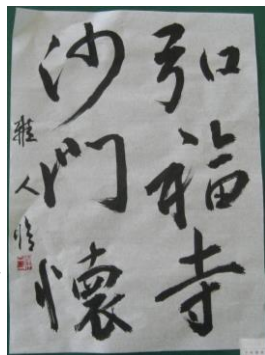 弘福寺
沙門懷
雅人臨